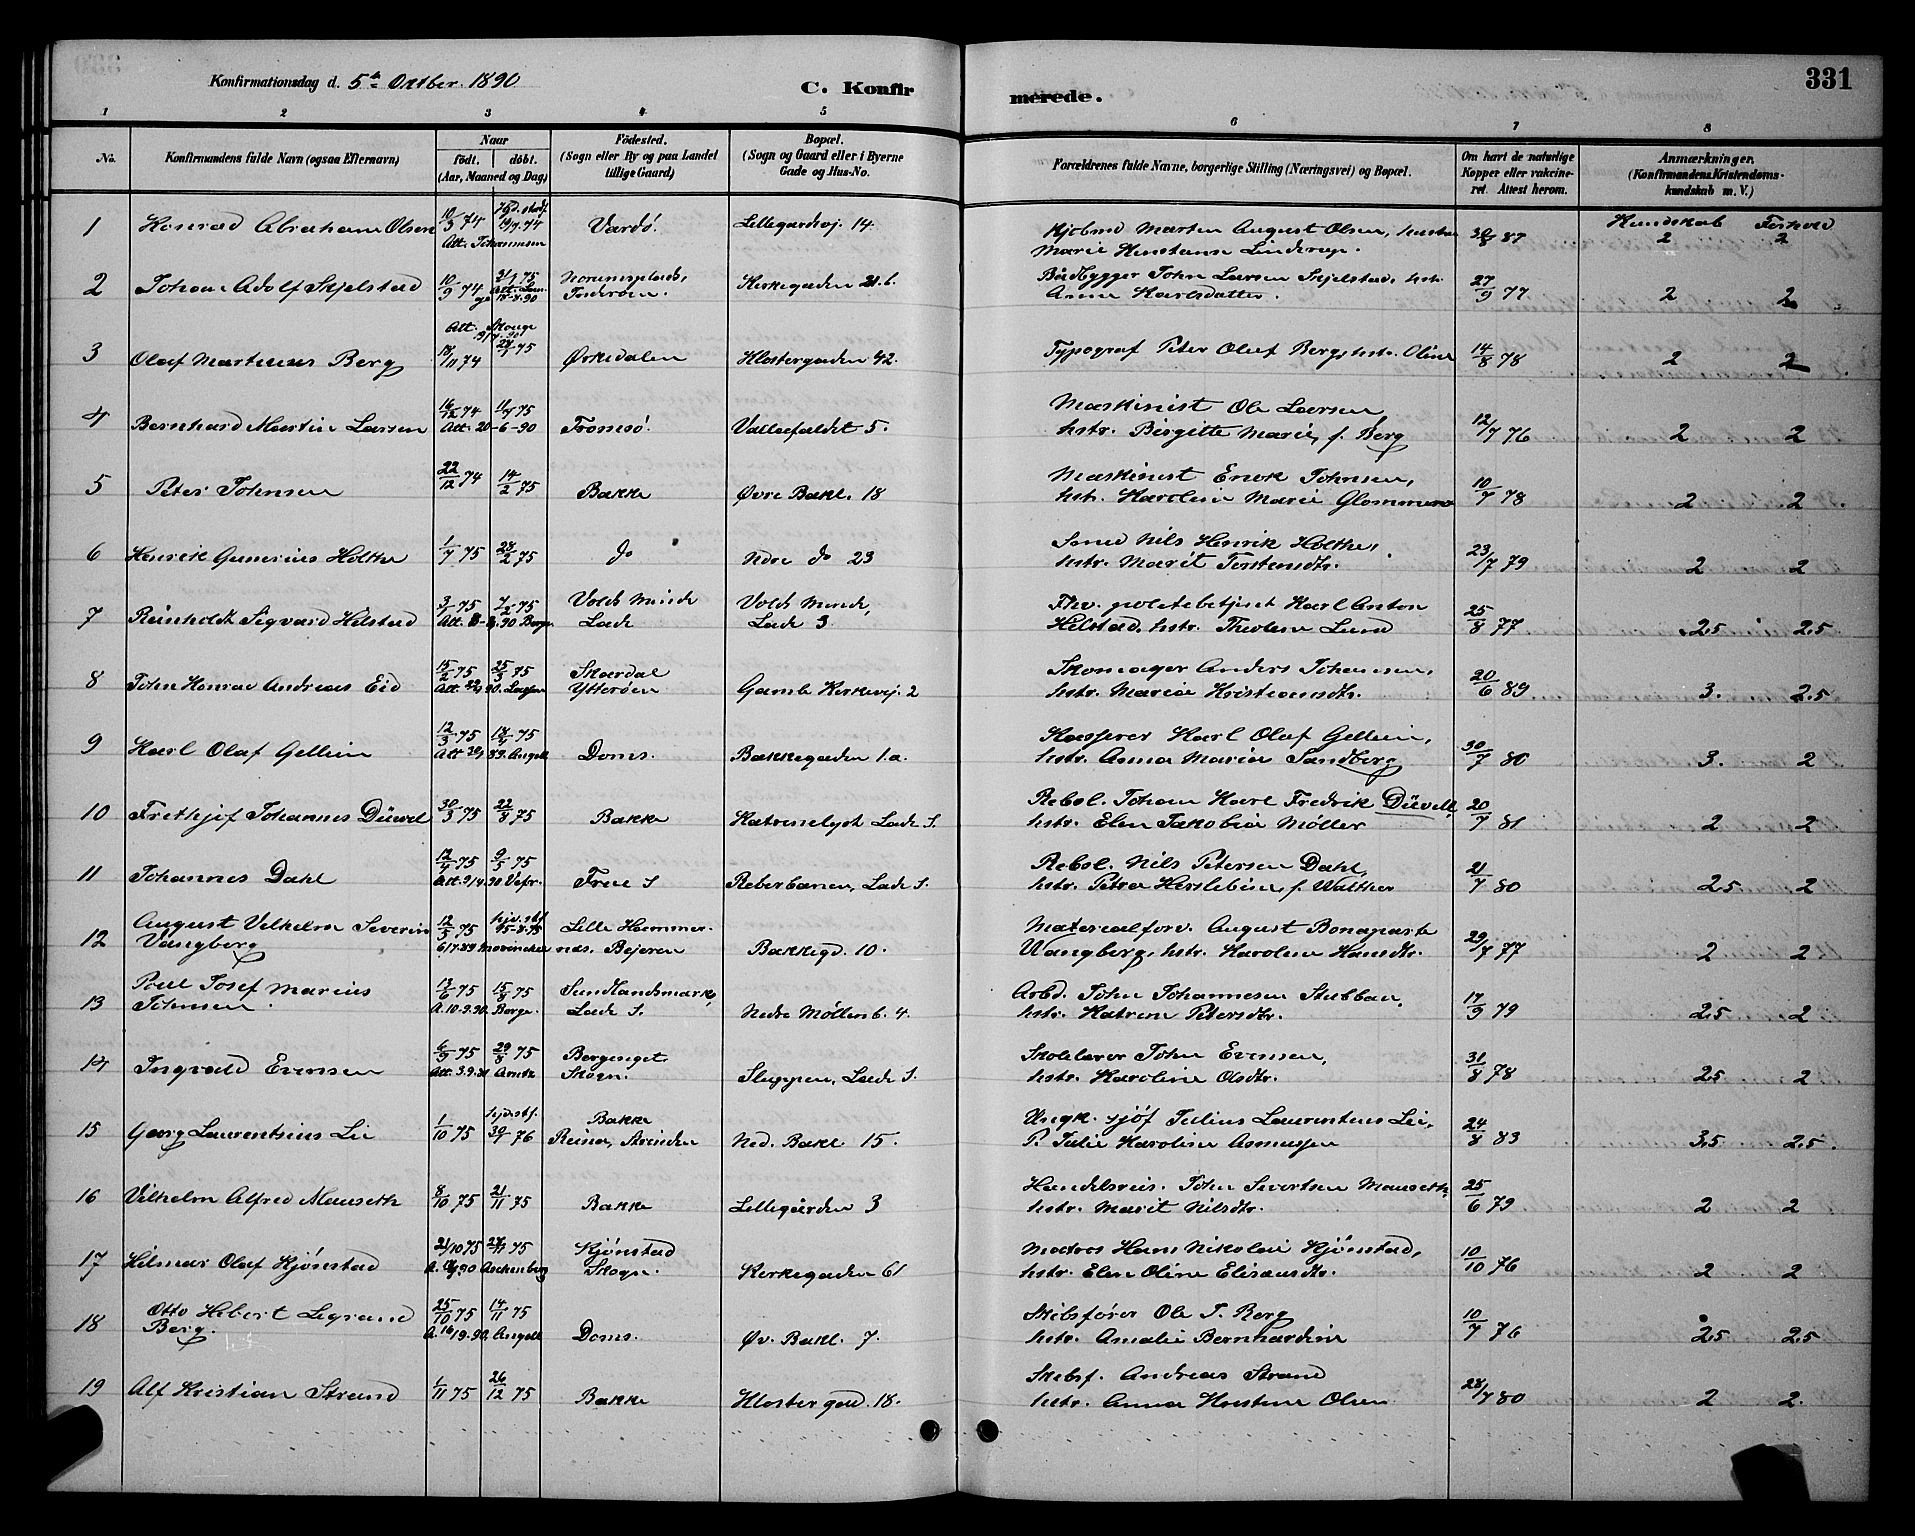 Konfirmationsdag d. 5te Oktber. 1890
C. Konfirmerede.
331
1 2 3 4 5 6 7 8
No.
Konfirmandens fulde Navn (ogsaa Efternavn)
Naar
födt. döbt.
(Aar, Maaned og Dag)
Födested.
(Sogn eller By og paa Landet
tillige Gaard)
Bopæl.
(Sogn og Gaard eller i Byerne
Gade og Hus-No.
Forældrenes fulde Navne, borgerlige Stilling (Næringsvei) og Bopæl.
Om havt de naturlige
Kopper eller vakcine-
ret. Attest herom.
Anmærkninger.
(Konfirmandens Kristendoms-
kundskab m. V.)
Kundskab Forhold
1 Konrad Abraham Olsen 10/3 74 Vardö. Lillegardsvj. 14. Marten August Olsen, hustru 30/8 87 2 2
Att. Johannesen Marie Lindrup.
2 Johan Adolf Skjelstad 10/9 74 Inderøen. Kirkegaden 21.b. Baadbygger John Larsen Skjelstad, hstr. 27/9 77 2 2
Anna Karlsdatter.
3 Olaf Martinus Berg 18/11 74 Ørkedalen Klostergaden 42. Typograf Peter Olaf Berg, hstr. Oline 14/8 78 2 2
4 Bernhard Martin Larsen 16/12 74 11/4 75 Tromsö. Vollafaldet 5. Maskinist Ole Larsen 12/7 76 2 2
Att. 20-6-90 hstr. Birgitte Marie, f. Berg
5 Peter Johnsen 22/12 74 14/2 75 Bakke Øvre Bakl. 18 Maskinist Enok Johnsen, 10/7 78 2 2
hstr. Karoline Marie Glommen
6 Henrik Gunerius Holthe 1/7 75 28/2 75 do Nedre do 23 Smed Nils Henrik Holthe, 23/7 79 2 2
hstr. Marit Torstensdtr.
7 Reinholdt Sigvard Hilstad 3/1 75 7/2 75 Volds Minde Volds Minde, Fhv. politibetjent Karl Anton 25/8 77 2,5 2,5
Lade Lade 3 Hilstad, hstr. Theoline Lund
8 John Konrad Andreas Eid 15/2 75 25/3 75 Skardal Gamle Kirkevej. 2 Skomager Anders Johansen, 20/6 89 3. 2,5
Ytterøen hstr. Maria Kristiansdtr.
9 Karl Olaf Gellein 12/3 75 18/4 75 Doms. Bakkegaden 1.a. Kasserer Karl Olaf Gellein, 30/7 80 3. 2
hstr. Anna Maria Sandberg
10 Frethjof Johannes Düvel 30/3 75 22/8 75 Bakke Katrinelyst Lade S. Rebsl. Johan Karl Fredrik Düvell, 20/7 81 2 2
hstr. Elen Jakobia Møller
11 Johannes Dahl 12/4 75 9/5 75 Free S Reberbanen, Lade S. Rebsl. Nils Petersen Dahl, 21/7 80 2,5 2
hstr. Petra Herslebine, f. Walther
12 August Vilhelm Severin 12/5 75 Lille Hammer- Bakkegd. 10. Materialforv. August Bonaparte 29/7 77 2 2
Vangberg nes. Bejeren Wangberg, hstr. Karoline Hansdtr.
13 Poul Josef Marius 13/6 75 15/8 75 Sundlandsmark, Nedre Møllenb. 4. Arbd. John Johannesen Stubban, 17/9 79 2,5 2
Johnsen. A. 10.9.90. Borge. Lade S. hstr. Katrine Petersdtr.
14 Ingvald Evensen 6/9 75 29/8 75 Bergsaget Sluppen, Lade S. Skolelærer John Evensen, 31/8 78 2,5 2
Skogn. hstr. Karoline Olsdtr.
15 Georg Laurentsius Lie 1/10 75 30/1 76 Bakke Ned. Bakl. 15. Ungk. sjöf Julius Laurentius Lie, 24/8 83 3,5 2,5
P. Julie Karoline Asmussen
16 Vilhelm Alfred Mauseth 8/10 75 21/11 75 Bakke Lillegaarden 3 Handelsreis. John Sivertsen Mauseth, 25/6 79 2 2
hstr. Marit Nilsdtr.
17 Hilmar Olaf Kjönstad 21/10 75 Kjönstad Kirkegaden 61 Matros Hans Nikolai Kjönstad, 10/10 76 2 2
Aschenberg Skogn. hstr. Elen Oline Eliasusdtr.
18 Otto Hebert Legrand 25/10 75 14/11 75 Doms. Øv. Bakl. 7. Skibsfører Ole J. Berg 10/7 76 2,5 2,5
Berg. A. 16/9.90. Angell hstr. Amalie Bernhardine
19 Alf Kristian Strand 1/11 75 26/12 75 Bakke Klostergad. 18. Skibsf. Andreas Strand 28/7 80 2 2.
hstr. Anna Kristine Olsen